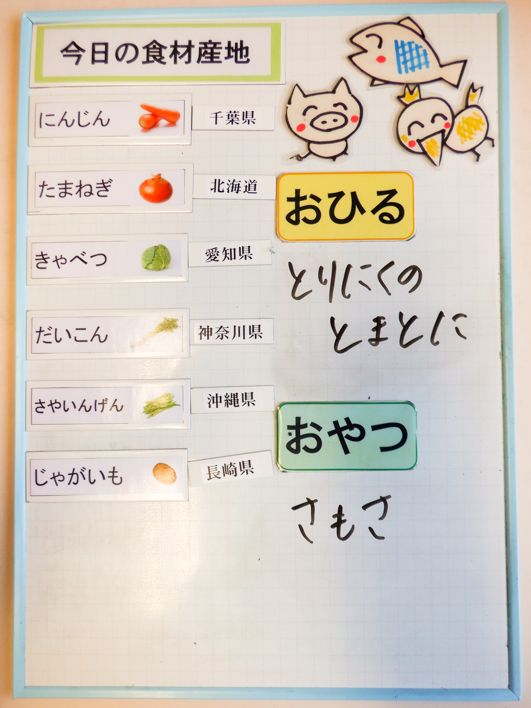 今日の食材産地
にんじん 千葉県
たまねぎ 北海道
きゃべつ 愛知県
だいこん 神奈川県
さやいんげん 沖縄県
じゃがいも 長崎県
おひる
とりにくの
とまとに
おやつ
さもさ